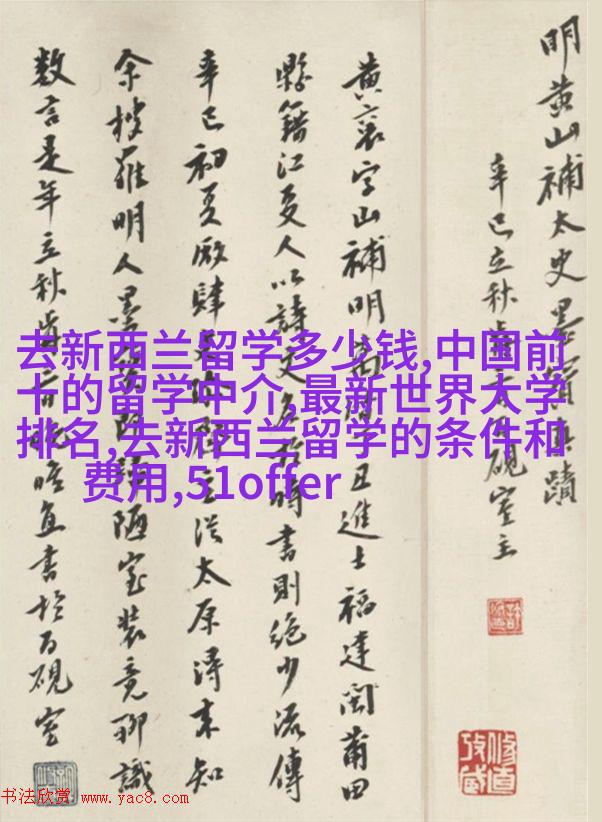 明黄山補太史墨蹟真蹟
辛巳立秋
硯室主
黄襄字山補明
丑進士福建閩莆田
縣籍江夏人以詩
時書則絶少流傳
辛巳初夏廠肆
太原潯來知
余搜羅明人墨
陋室裝竟聊識
數言是年立秋
宜書於百硯室
去新西兰留学多少钱,中国前
十的留学中介,最新世界大学
排名,去新西兰留学的条件和
费用,51offer
书法欣赏 www.yac8.com